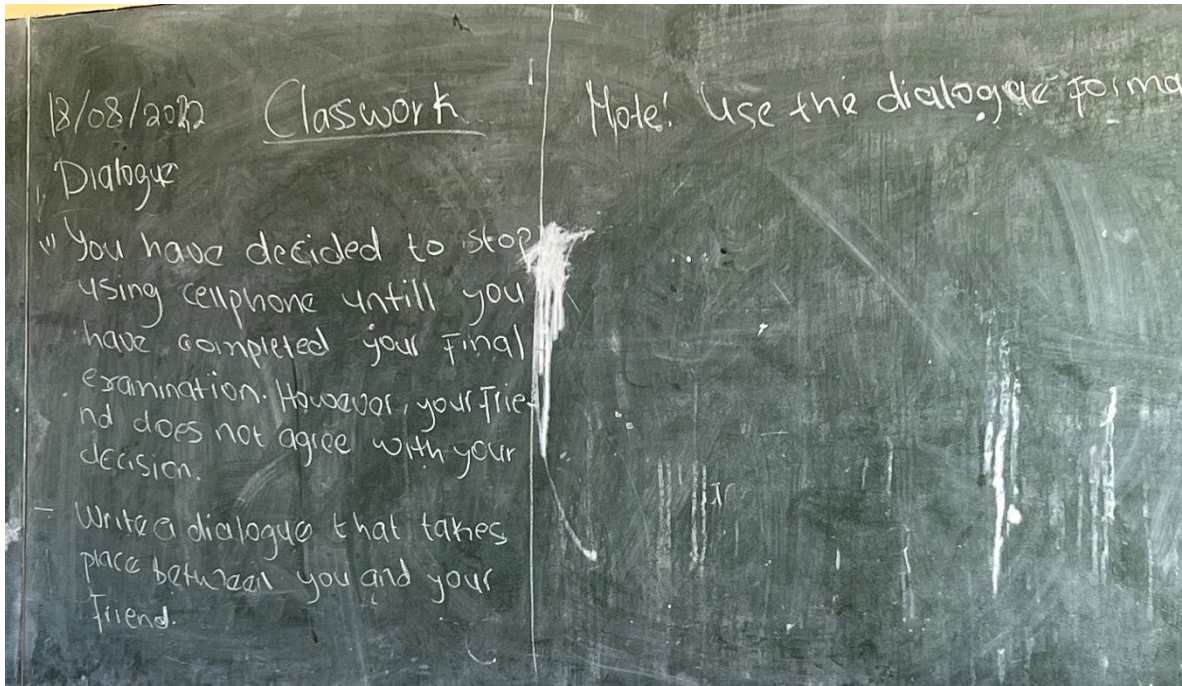 18/08/2022 Classwork
Dialogue
" You have decided to stop
using cellphone untill you
have completed your Final
examination. However, your Frie-
nd does not agree with your
decision.
- Write a dialogue that takes
place between you and your
Friend.
Note! Use the dialogue forma